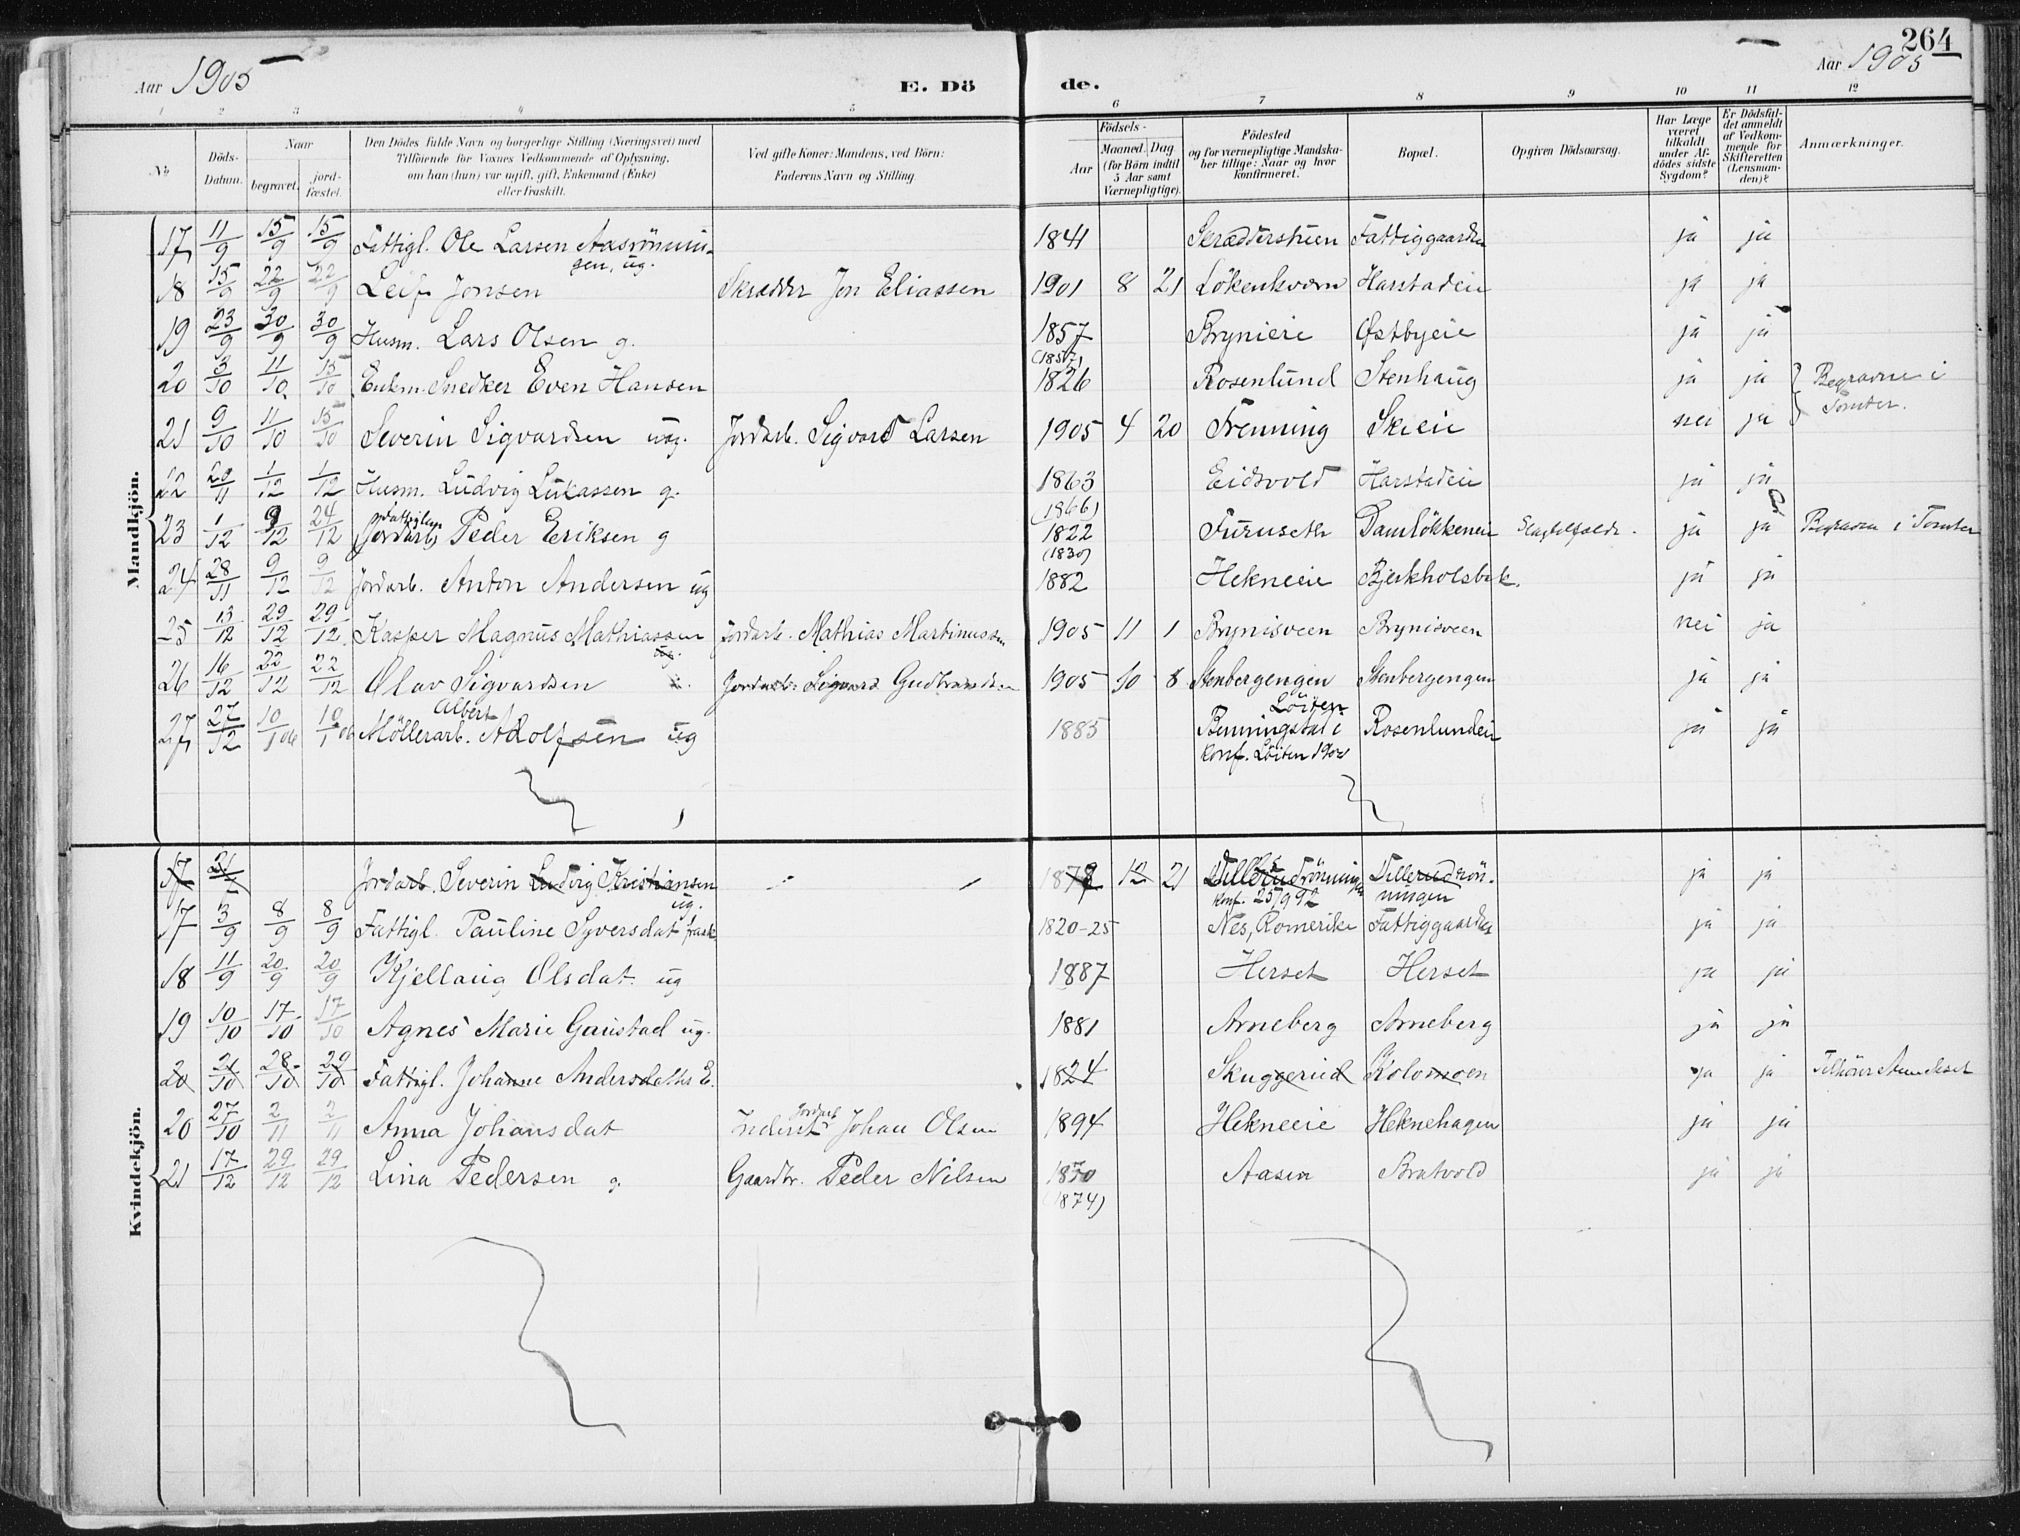 264
Aar 1905 E. Dö de. Aar 1905
1 2 3 4 5 6 7 8 9 10 11 12
No Döds-Datum. Naar begravet. jord-fæstet. Den Dödes fulde Navn og borgerlige Stilling (Næringsvei) med Tilföiende for Voxnes Vedkommende af Oplysning, om han (hun) var ugift, gift, Enkemand (Enke) eller fraskilt. Ved gifte Koner: Mandens, ved Börn: Faderens Navn og Stilling. Födsels- Aar Maaned. Dag (for Börn indtil 5 Aar samt Værnepligtige). Födested og for værnepligtige Mandskaber tillige: Naar og hvor konfirmeret. Bopæl. Opgiven Dödsaarsag. Har Læge været tilkaldt under Afdödes sidste Sygdom? Er Dödsfaldet anmeldt af Vedkommende for Skifteretten (Lensmanden)? Anmærkninger.
Mandkjön.
17 11/9 15/9 15/9 Fattigl. Ole Larsen Aasrönnin-gen, ug. 1841 Skrædderstuen Fattiggaarden ja ja
18 15/9 22/9 22/9 Leif Jonsen Skrædder Jon Eliassen 1901 8 21 Lökenkværn Harstadeie ja ja
19 23/9 30/9 30/9 Husm. Lars Olsen g. 1857 (1857) Brynieie Østbyeie ja ja
20 3/10 11/10 15/10 Enkm. Snedker Even Hansen 1826 Rosenlund Stenhaug ja ja Begravne i Tomter.
21 9/10 11/10 15/10 Severin Sigvardsen ug. Jordarb. Sigvard Larsen 1905 4 20 Frenning Skieie nei ja
22 20/11 1/12 1/12 Husm. Ludvig Lukassen g. 1863 (1866) Eidsvold Harstadeie ja ja
23 1/12 9/12 24/12 Fattiglem Jordarb. Peder Eriksen g 1822 (1830) Furuseth Damlökkeneie ja ja Begraven i Tomter
24 28/11 9/12 9/12 Jordarb. Anton Andersen ug 1882 Hekneeie Bjerkholsbak. ja ja
25 13/12 29/12 29/12 Kasper Magnus Mathiassen ug. Jordarb. Mathias Martinussen 1905 11 1 Brynisveen Brynisveen nei ja
26 16/12 22/12 22/12 Olav Sigvardsen Jordarb. Sigvard Gudbrandsen 1905 10 8 Stenbergengen Stenbergengen ja ja
27 27/12 10/1 06 10/1 06 Möllerarb. Albert Adolfsen ug 1885 Benningstad i Löiten konf. Löiten 190 Rosenlundeie ja ja
Kvindekjön.
17 21/ Jordarb. Severin Ludvig Kristiansen ug. 187 12 21 Dillerudrönningen konf. 25/9 92 Dillerudrön-ningen ja ja
17 3/9 8/9 8/9 Fattigl. Pauline Syversdat frask 1820-25 Nes, Romerike Fattiggaarden ja ja
18 11/9 20/9 20/9 Kjellaug Olsdat. ug 1887 Herset Herset ja ja
19 10/10 17/10 17/10 Agnes Marie Gaustad ug. 1881 Arneberg Arneberg ja ja
20 21/10 28/10 29/10 Fattigl. Johanne Andersdatter E. 1824 Skuggerud Kolomoen ja ja
20 27/10 2/11 2/11 Anna Johansdat Jordarb Johan Olsen 1894 Hekneeie Heknehagen ja ja
21 17/12 29/12 29/12 Lina Pedersen g. Gaardbr. Peder Nilsen 1870 (1874) Aasen Bratvold ja ja